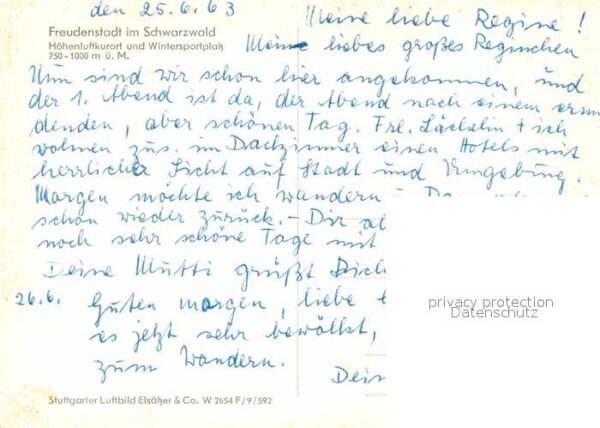 den 25.6.63
Freudenstadt im Schwarzwald
Höhenluftkurort und Wintersportplatz
750-1000 m ü. M.
Meine liebe Regine!
Meine liebes großes Reginchen
Nun sind wir schon hier angekommen, und
der 1. Abend ist da, der Abend nach einem ermü
denden, aber schönen Tag. Frl. Lächelin + ich
wohnen zus. im Dachzimmer einen Hotels mit
herrlicher Sicht auf Stadt und Umgebung.
Morgen möchte ich wandern -
schon wieder zurück. - Dir
noch sehr schöne Tage mit
Deine Mutti grüßt Dich
26.6. Guten morgen, liebe
es jetzt sehr bewölkt,
zum Wandern.
Dein
privacy protection
Datenschutz
Stuttgarter Luftbild Elsäßer & Co. W 2654 F/9/592